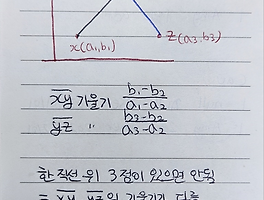 x(a₁,b₁) z(a₃,b₃)
xy 기울기 b₁-b₂/a₁-a₂
yz 〃 b₃-b₂/a₃-a₂
한 직선 위 3점이 있으면 안됨
= xy, yz의 기울기가 다름